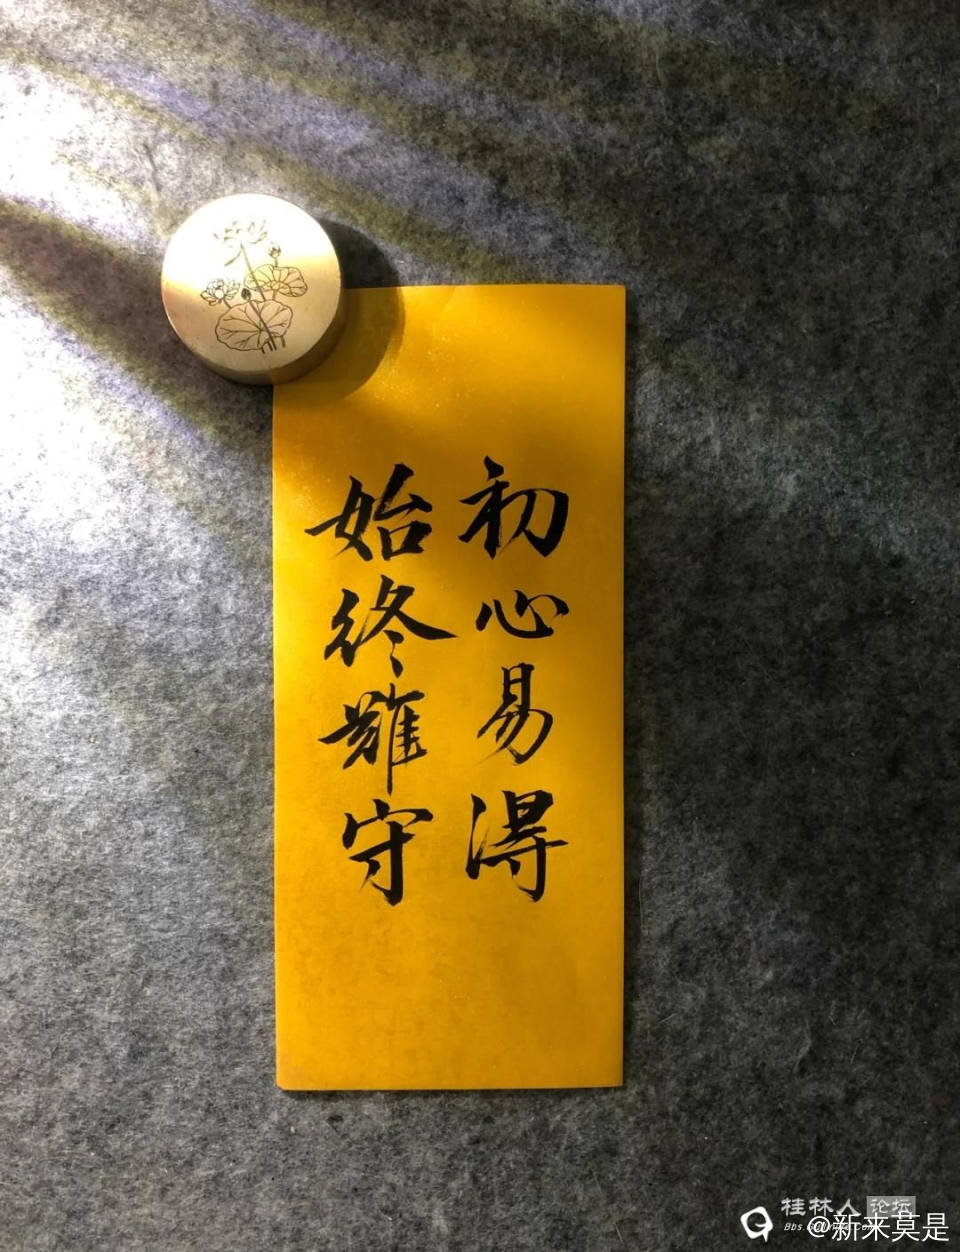 初心易得
始终難守
桂林人论坛
@新来莫是